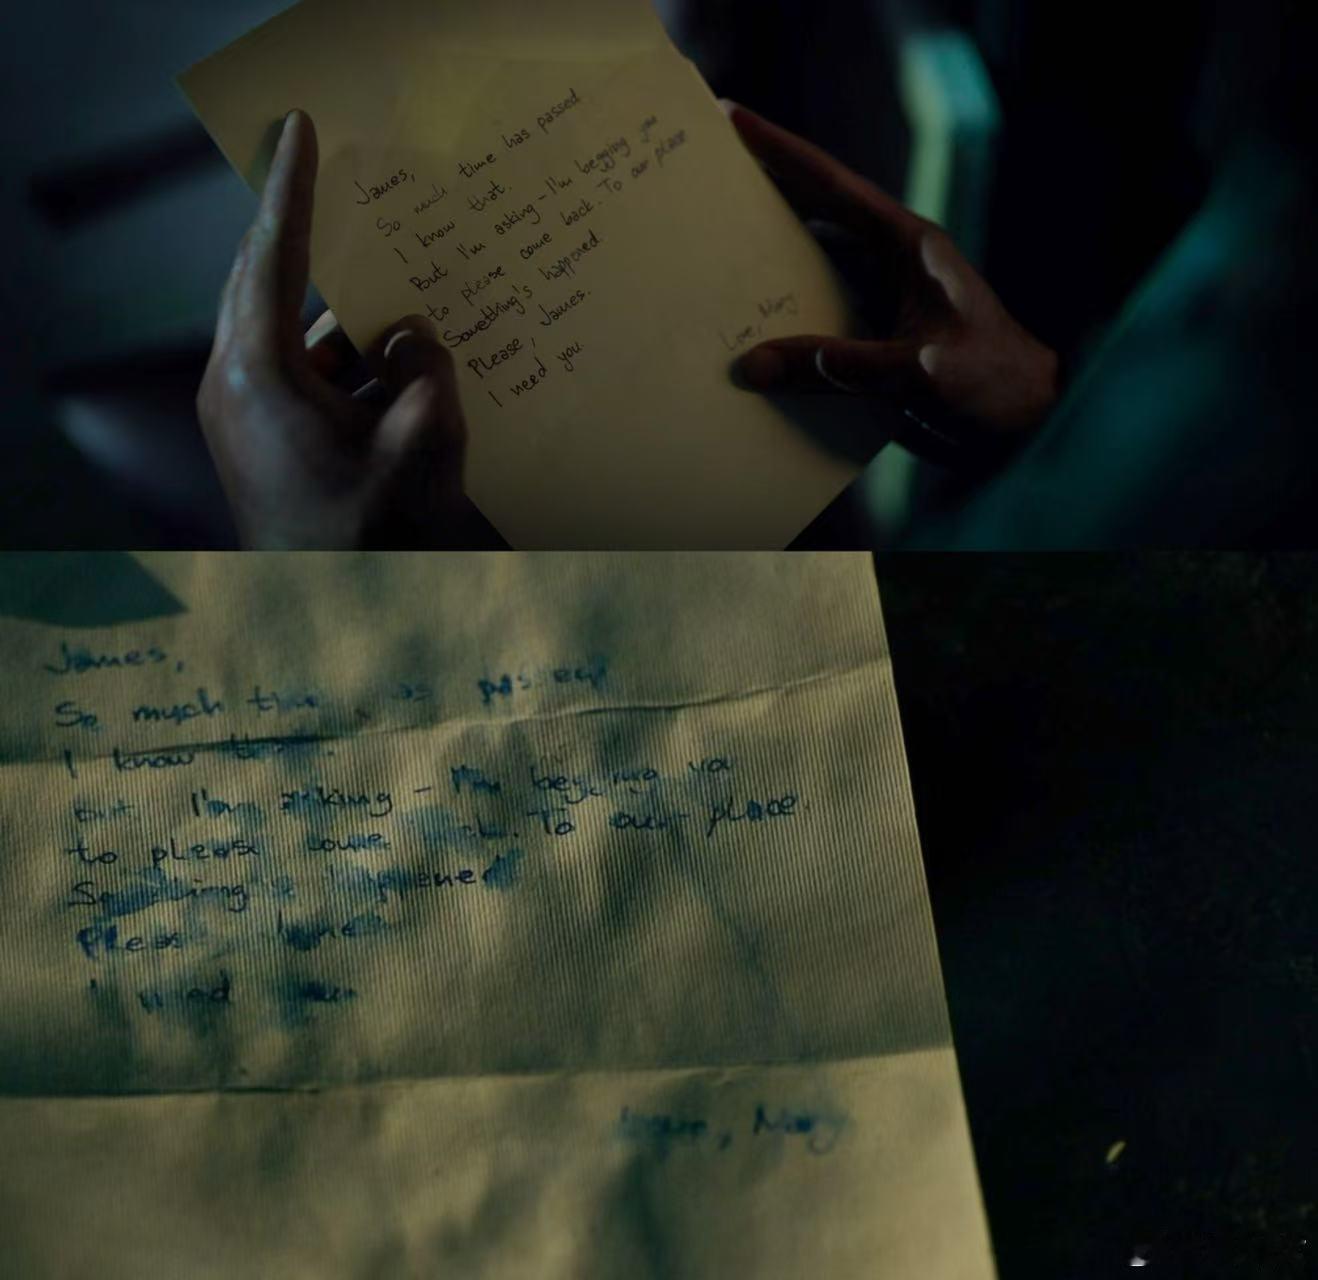 James,
So much time has passed
I know that.
But I'm asking - I'm begging you
to please come back. To our place
Something's happened.
Please, James.
I need you.
Love, Mary
James,
So much as passed
I know
but I'm asking - I'm begging you
to please come . To our place.
Something's happened
Please

Love, Mary